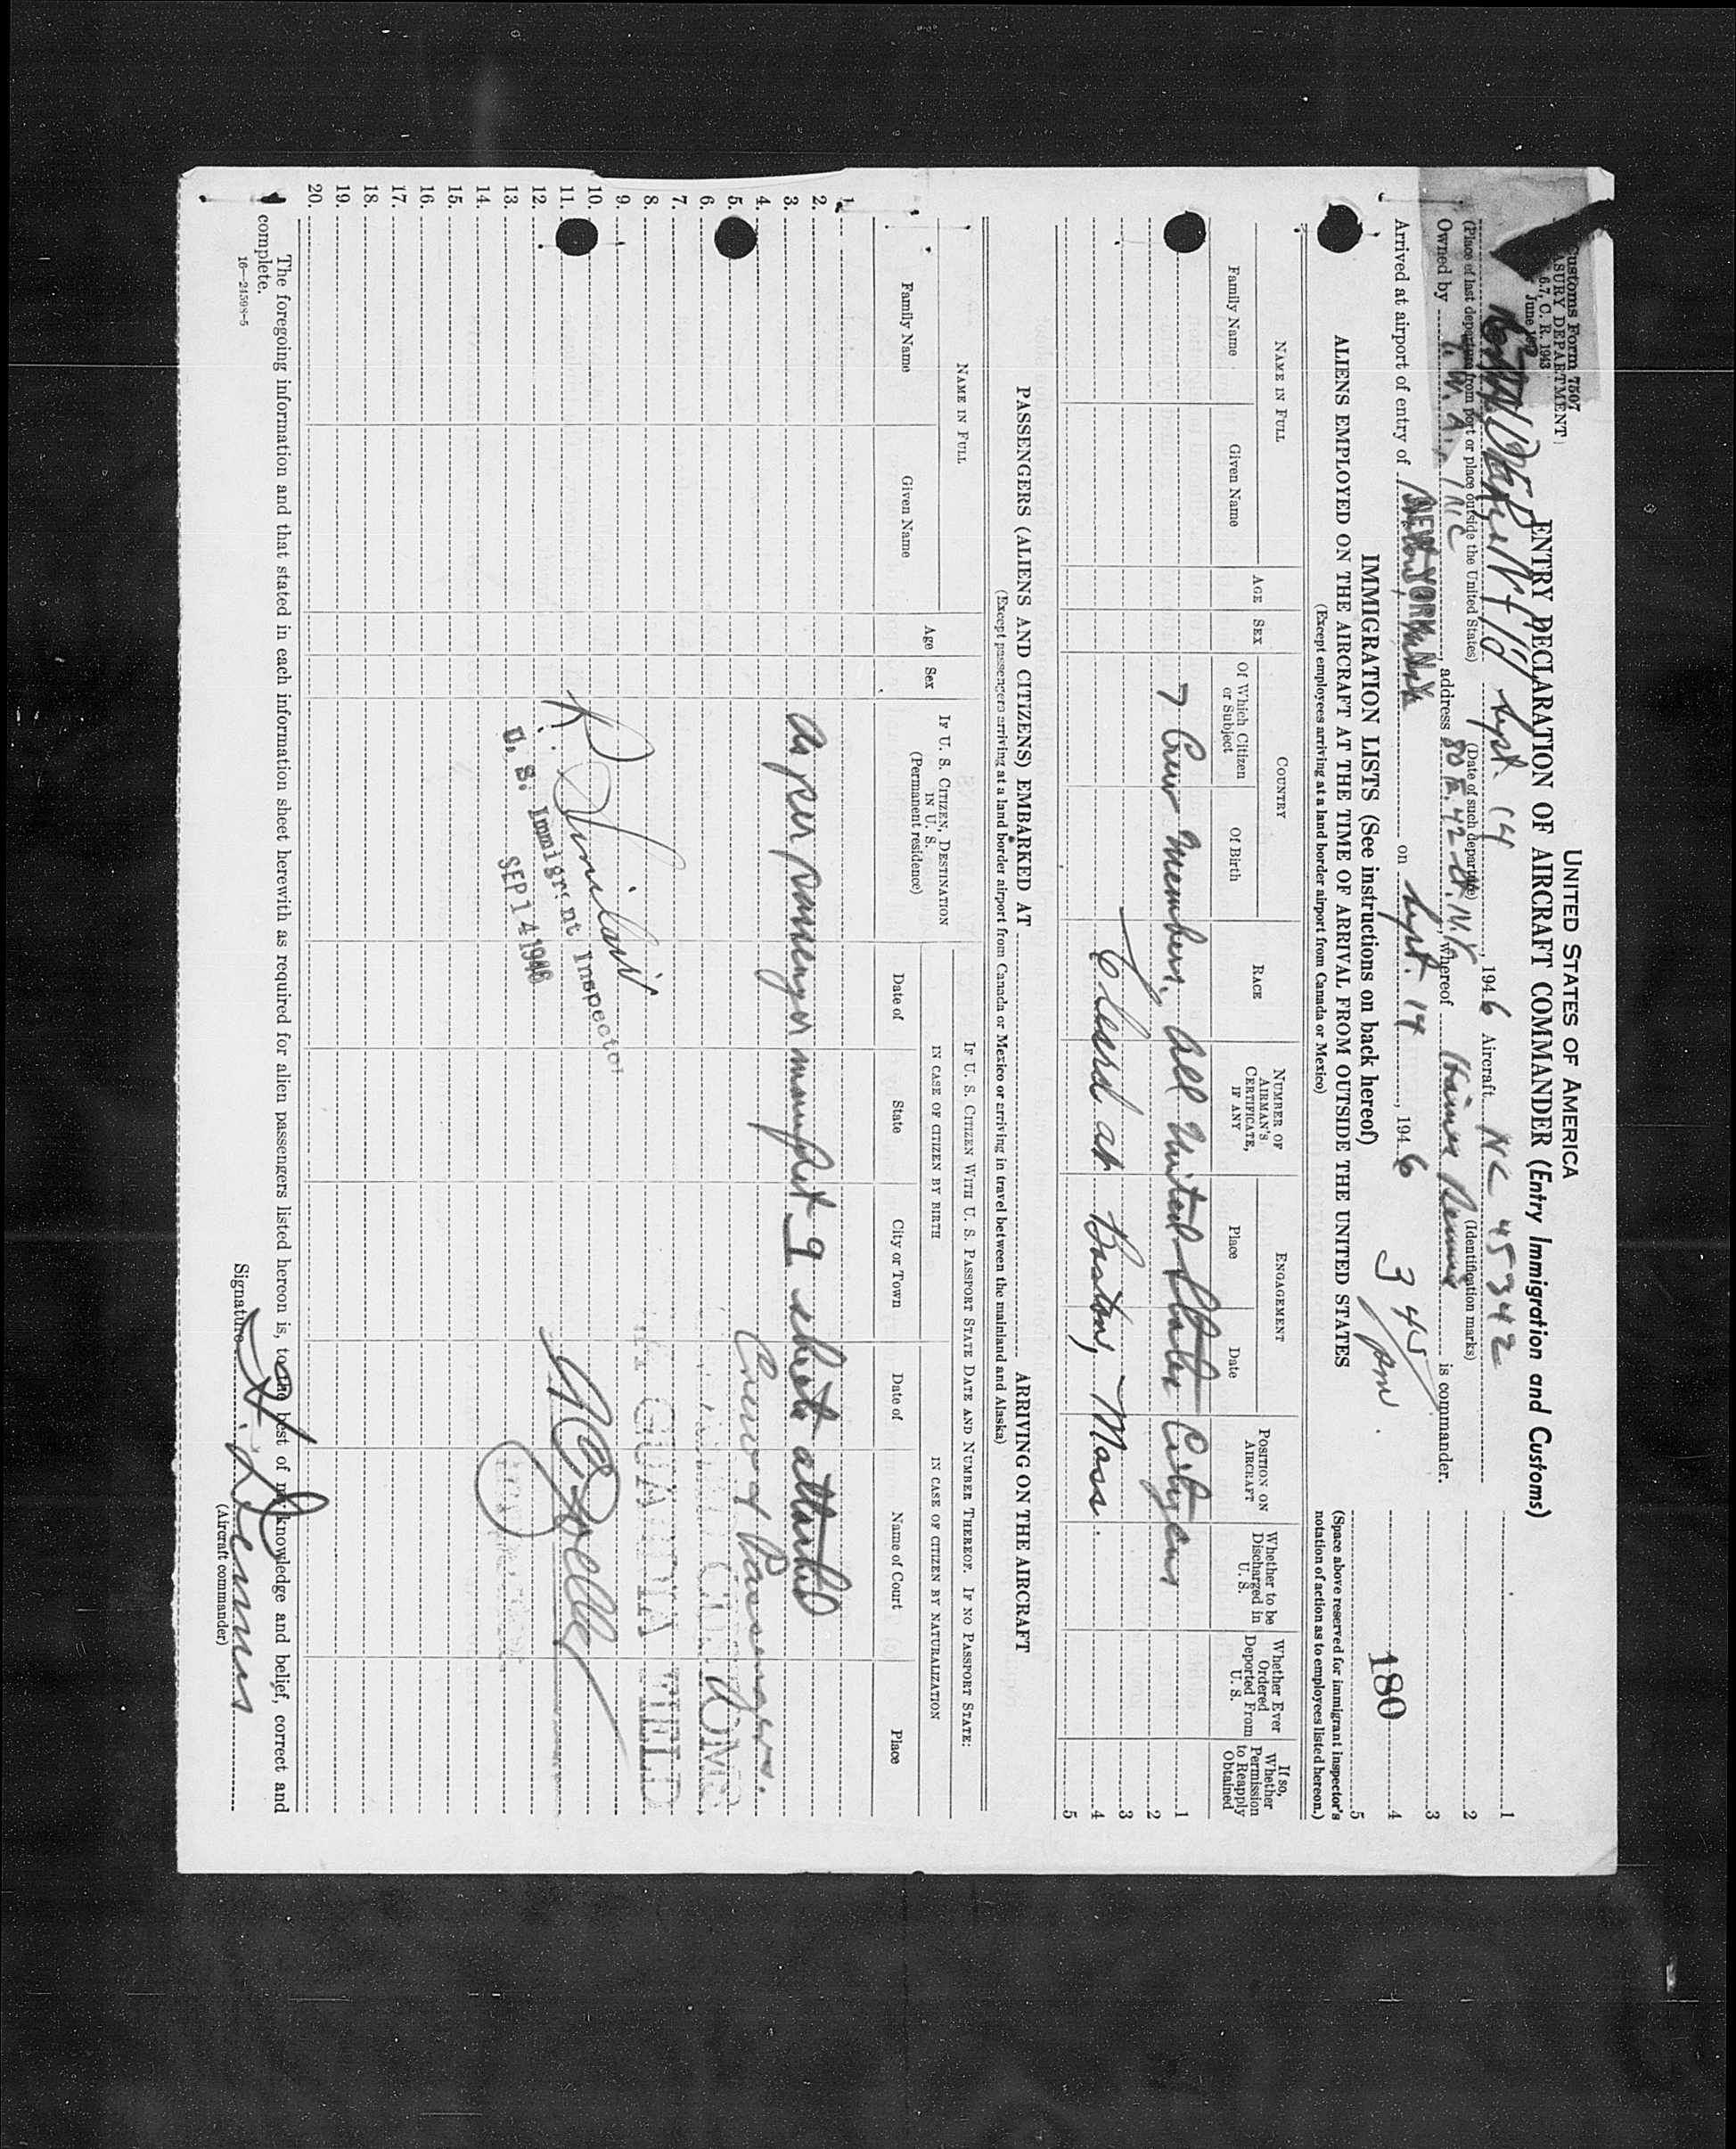 Customs Form 7507
TREASURY DEPARTMENT
6.7, C. R. 1943
June
UNITED STATES OF AMERICA
ENTRY DECLARATION OF AIRCRAFT COMMANDER (Entry Immigration and Customs)
Nf'l'd Sept. 14, 1946 Aircraft NC 45342
(Place of last departure from port or place outside the United States) (Date of such departure) (Identification marks)
Owned by T. W. A., INC address 80 E. 42 St. N.Y., whereof is commander.
Arrived at airport of entry of NEW YORK, N.Y. on Sept. 14, 1946 3 45/pm.
1
2
3
4
5
180
IMMIGRATION LISTS (See instructions on back hereof)
(Space above reserved for immigrant inspector's notation of action as to employees listed hereon.)
ALIENS EMPLOYED ON THE AIRCRAFT AT THE TIME OF ARRIVAL FROM OUTSIDE THE UNITED STATES
(Except employees arriving at a land border airport from Canada or Mexico)
NAME IN FULL
Family Name
Given Name
AGE
SEX
COUNTRY
Of Which Citizen or Subject
Of Birth
RACE
NUMBER OF AIRMAN'S CERTIFICATE, IF ANY
ENGAGEMENT
Place
Date
POSITION ON AIRCRAFT
Whether to be Discharged in U. S.
Whether Ever Ordered Deported From U. S.
If so, Whether Permission to Reapply Obtained
7 Crew Members, All United States Citizens
Cleard at Boston, Mass.
1
2
3
4
5
PASSENGERS (ALIENS AND CITIZENS) EMBARKED AT ARRIVING ON THE AIRCRAFT
(Except passengers arriving at a land border airport from Canada or Mexico or arriving in travel between the mainland and Alaska)
NAME IN FULL
Family Name
Given Name
Age
Sex
IF U. S. CITIZEN, DESTINATION IN U. S.
(Permanent residence)
IF U. S. CITIZEN WITH U. S. PASSPORT STATE DATE AND NUMBER THEREOF. IF NO PASSPORT STATE:
IN CASE OF CITIZEN BY BIRTH
IN CASE OF CITIZEN BY NATURALIZATION
Date of
State
City or Town
Date of
Name of Court
Place
1.
2.
3. As per passenger manifest 9 sheets attached
4.
5. Crew & Passengers.
6. CUSTOMS
7.
8. GUARDIA FIELD
9.
10.
11.
12. U. S. Immigrant Inspector
13. SEP 14 1946
14.
15.
16.
17.
18.
19.
20.
The foregoing information and that stated in each information sheet herewith as required for alien passengers listed hereon is, to the best of my knowledge and belief, correct and
complete.
16—24598-5
Signature
(Aircraft commander)